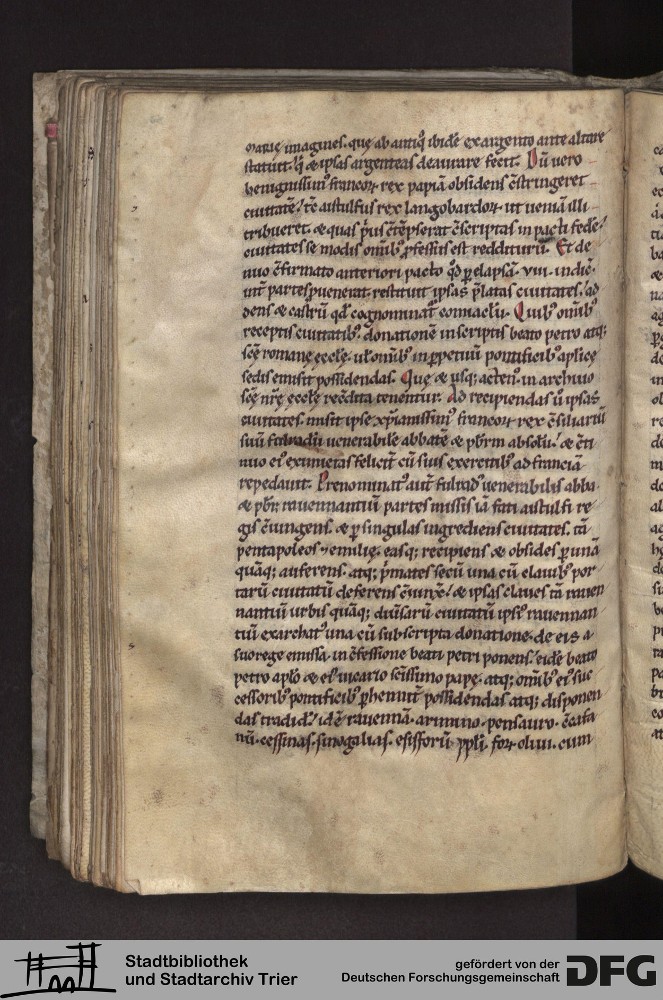 marię imagines. quę ab antiqͥ ibidē ex argento ante altare
statuit. qͥ & ipsas argenteas deaurare fecit. Dū uero
benignissimꝰ francoꝝ rex papiā obsidens c̄stringeret
ciuitatē. tc̄ aistulfus rex langobardoꝝ ut ueniā illi
tribueret. & quas pͥus c̄tēpserat c̄scriptas in pacti fedeͬ
ciuitates se modis om̄ibꝰ ꝓfessus est redditurū. Et de
nuo c̄firmato anteriori pacto qđ ꝑ elapsā. viii. indic̄.
int̄ partes puenerat. restituit ipsas p̄latas ciuitates. ad
dens & castrū qđ cognominat̄ comiaclū. Quibꝰ om̄ibꝰ
receptis ciuitatibꝰ. donationē in scriptis beato petro atq;
scę romanę ęccłę. uł om̄ibꝰ in ꝑpetuū pontificibꝰ aplicę
sedis emisit possidendas. Quę & usq; acten̄. in archiuo
scę nr̄ę ęccłę rec̄dita tenentur. Ad recipiendas ů ipsas
ciuitates. misit ipse xp̄ianissimꝰ francoꝝ rex c̄siliariū
suū fulradū uenerabilē abbatē & pb̄rm absolū. & c̄ti
nuo eiꝰ eximietas felicit̄ cū suis exercitibꝰ ad franciā
repedauit. Prenominatꝰ aut̄ fulradꝰ uenerabilis abba
& pb̄r. rauennantiū partes missis iā fati aistulfi re
gis c̄iungens. & ꝑ singulas ingrediens ciuitates. tā
pentapoleos ⁊ emilię. easq; recipiens & obsides ꝑ unā
quāq; auferens. atq; pͥmates secū una cū clauibꝰ por
tarū ciuitatū deferens c̄iunx̄. & ipsas claues tā rauen
nantiū urbis quāq; diu̇sarū ciuitatū ipsiꝰ rauennan
tiū exarchatꝰ una cū subscripta donatione. de eis a
suo rege emissa. in c̄fessione beati petri ponens. eidē beato
petro apło & eiꝰ uicario sc̄issimo papę. atq; om̄ibꝰ eiꝰ suc
cessoribꝰ pontificibꝰ ꝑhennit̄ possidendas atq; disponen
das tradidͭ. idē rauennā. arimino. pensauro. c̄cafa
nū. cessinas. sinogalias. esisforū pplī. foꝝ oliui. cum
Stadtbibliothek
und Stadtarchiv Trier
gefördert von der
Deutschen Forschungsgemeinschaft
DFG